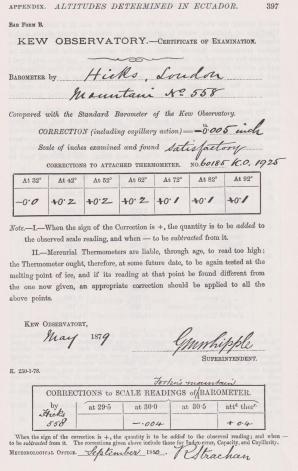 APPENDIX. ALTITUDES DETERMINED IN ECUADOR. 397
BAR FORM B.
KEW OBSERVATORY.—CERTIFICATE OF EXAMINATION.
BAROMETER by Hicks, London
Mountain No 558
Compared with the Standard Barometer of the Kew Observatory.
CORRECTION (including capillary action) = -0.005 inch
Scale of inches examined and found satisfactory
CORRECTIONS TO ATTACHED THERMOMETER. NO. 60185 K.O. 1925
At 32° At 42° At 52° At 62° At 72° At 82° At 92°
-0.0 +0.2 +0.2 +0.2 +0.1 +0.1 +0.1
Note.—I.—When the sign of the Correction is +, the quantity is to be added to
the observed scale reading, and when — to be subtracted from it.
II.—Mercurial Thermometers are liable, through age, to read too high;
the Thermometer ought, therefore, at some future date, to be again tested at the
melting point of ice, and if its reading at that point be found different from
the one now given, an appropriate correction should be applied to all the
above points.
KEW OBSERVATORY,
May 1879
G M Whipple
SUPERINTENDENT.
K. 250-1-78.
Fortin's mountain
CORRECTIONS to SCALE READINGS of BAROMETER.
by Hicks 558 at 29·5 at 30·0 at 30·5 attd ther
-.004 +0.4
When the sign of the correction is +, the quantity is to be added to the observed reading; and when —
to be subtracted from it. The corrections given above include those for Index-error, Capacity, and Capillarity.
METEOROLOGICAL OFFICE September 1880 R Strachan